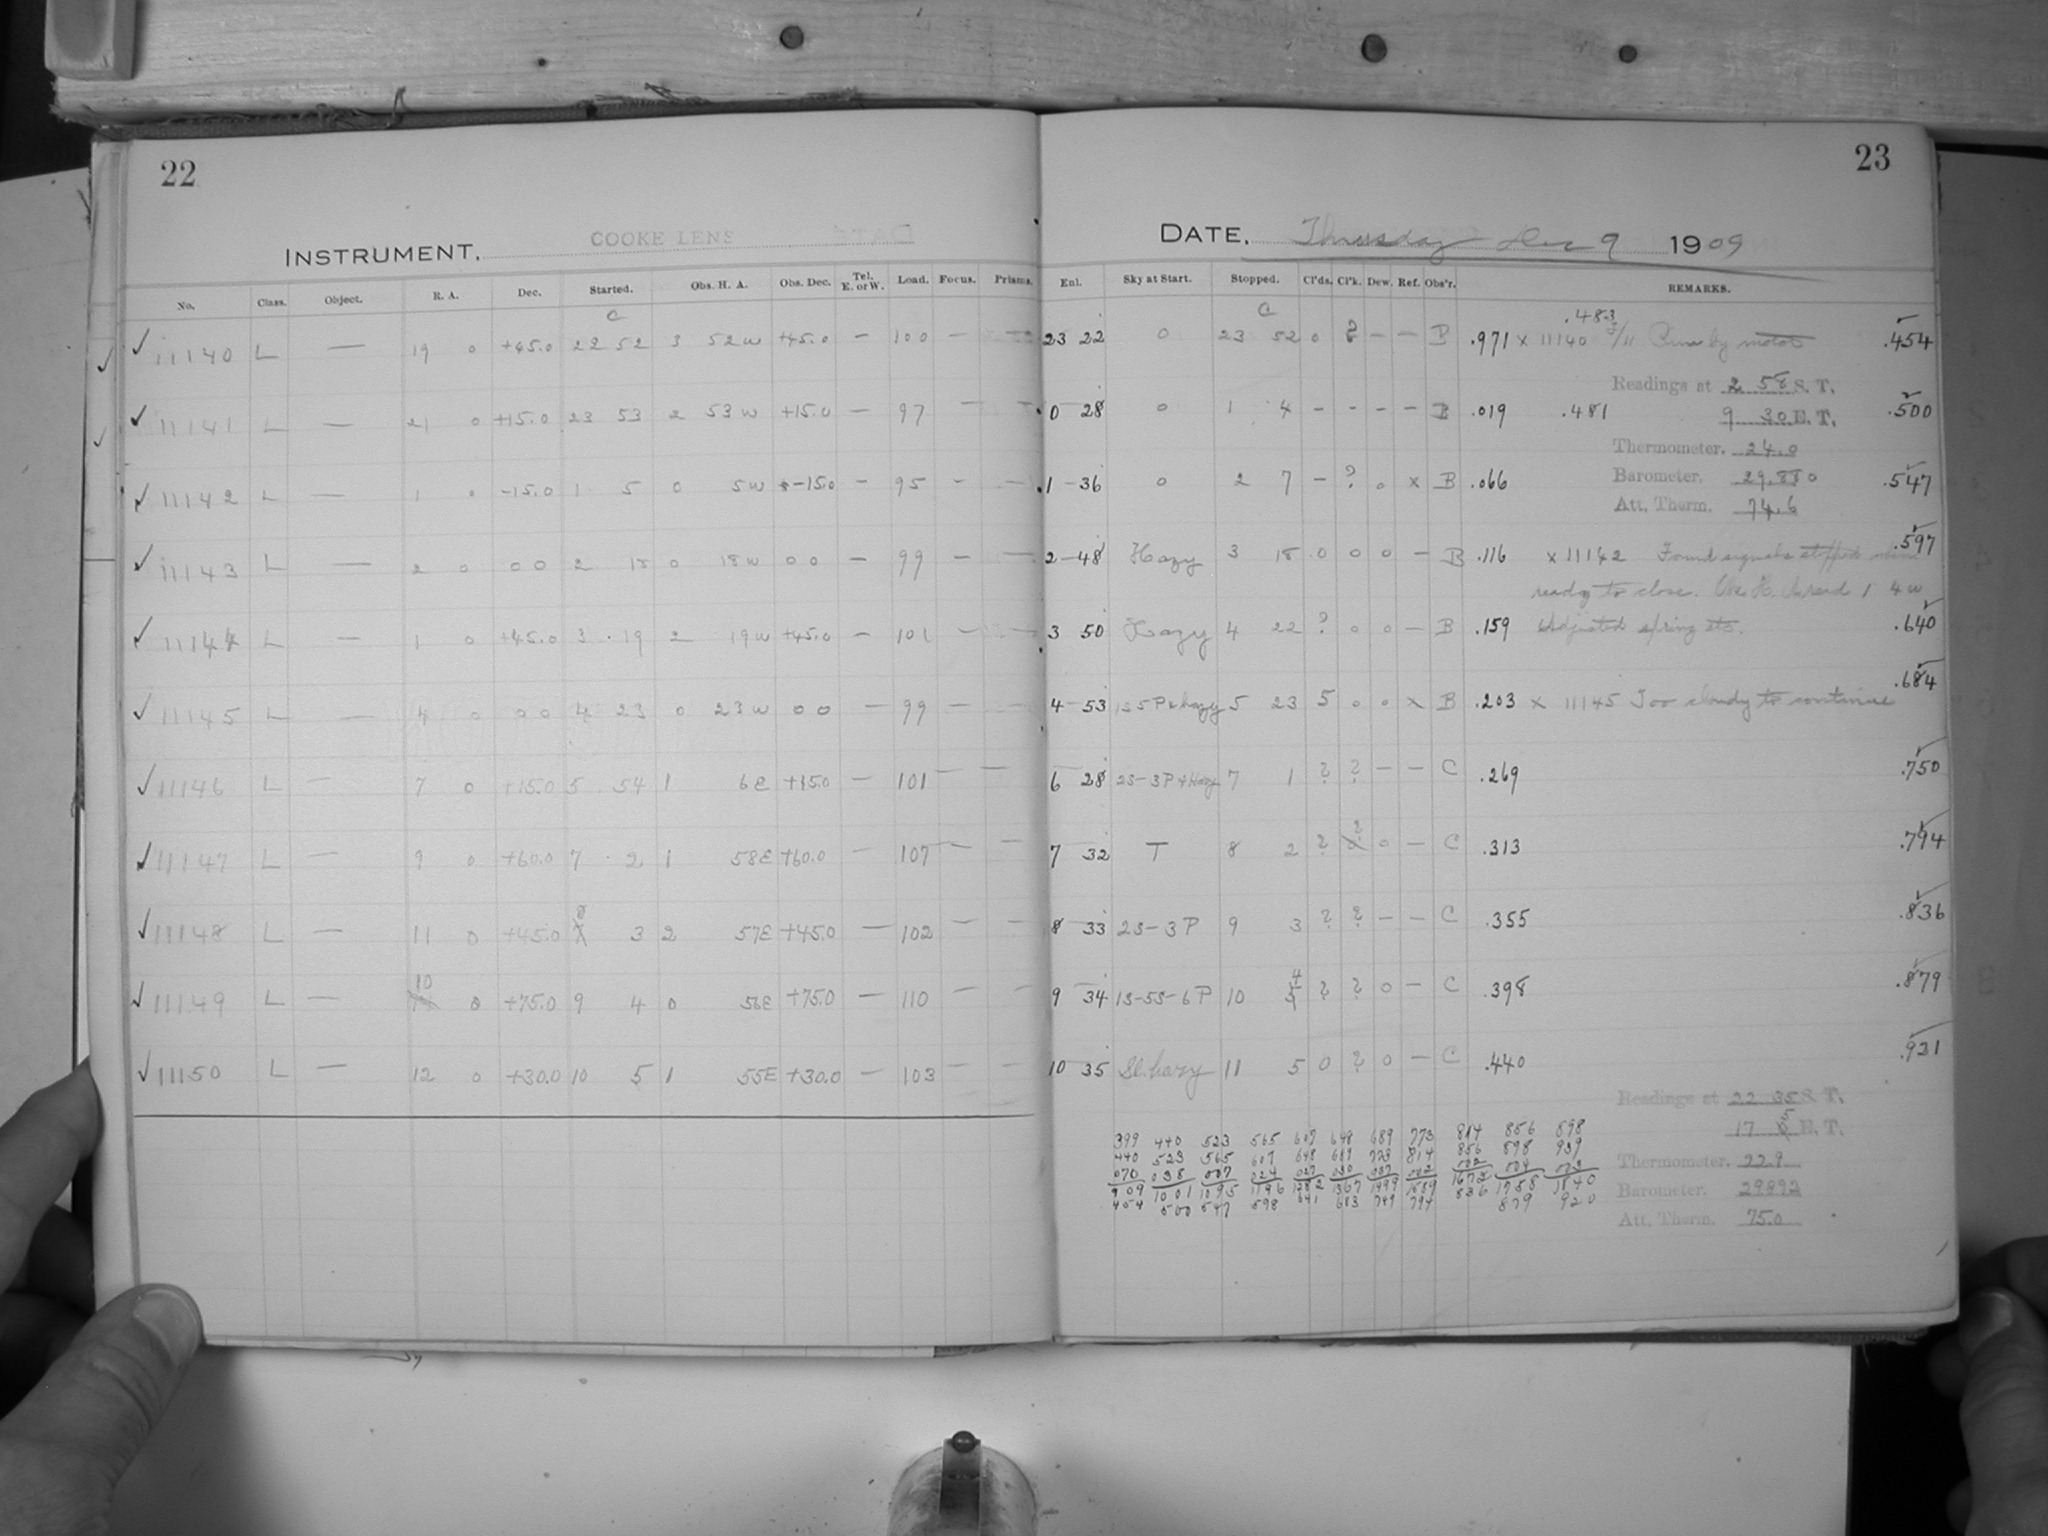 22
INSTRUMENT. COOKE LENS
No. Class. Object. R. A. Dec. Started. Obs. H. A. Obs. Dec. Tel. E. or W. Load. Focus. Prisms.
✓ 11140 L — 19 0 +45.0 22 52 3 52 W +45.0 — 100 — —
✓ 11141 L — 21 0 +15.0 23 53 2 53 W +15.0 — 97 — —
✓ 11142 L — 1 0 -15.0 1 5 0 5 W -15.0 — 95 — —
✓ 11143 L — 2 0 0 0 2 18 0 18 W 0 0 — 99 — —
✓ 11144 L — 1 0 +45.0 3 19 2 19 W +45.0 — 101 — —
✓ 11145 L — 4 0 0 0 4 23 0 23 W 0 0 — 99 — —
✓ 11146 L — 7 0 +15.0 5 54 1 6 E +15.0 — 101 — —
✓ 11147 L — 9 0 +60.0 7 2 1 58 E +60.0 — 107 — —
✓ 11148 L — 11 0 +45.0 8 3 2 57 E +45.0 — 102 — —
✓ 11149 L — 10 0 +75.0 9 4 0 56 E +75.0 — 110 — —
✓ 11150 L — 12 0 +30.0 10 5 1 55 E +30.0 — 103 — —
23
DATE, Thursday Dec 9 1909
Exl. Sky at Start. Stopped. Cl'ds. Cl'k. Dew. Ref. Obs'r. REMARKS.
C
.483
23 22 0 23 52 0 ? — — B .971 x 11140 Runs by motor .454
Readings at 2 58 S. T.
0 28 0 1 4 - - - - B .019 .481 9 30 E. T. .500
Thermometer. 24.0
1 36 0 2 7 - ? 0 x B .066 Barometer. 29.880 .547
Att. Therm. 74.6
2 48 Hazy 3 18 0 0 0 - B .116 x 11142 Found signals stopped when .597
ready to close. Obs. H. A. read 1 4 W
3 50 Hazy 4 22 ? 0 0 - B .159 Adjusted spring etc. .640
4 53 1S 5P & hazy 5 23 5 0 0 x B .203 x 11145 Too cloudy to continue .684
6 28 2S-3P + Hazy 7 1 ? ? - - C .269 .750
7 32 T 8 2 ? ? 0 - C .313 .794
8 33 2S-3P 9 3 ? ? - - C .355 .836
9 34 1S-5S-6P 10 4 ? ? 0 - C .398 .879
10 35 Sl. hazy 11 5 0 ? 0 - C .440 .921
Readings at 22 35 S. T.
17 5 E. T.
Thermometer. 22.9
Barometer. 29892
Att. Therm. 75.0
399 440 523 565 607 648 689 773 814 856 898
440 523 565 607 648 689 773 814 856 898 939
070 038 007 024 027 030 037 002 002 004 003
909 1001 1095 1196 1282 1367 1499 1589 1672 1758 1840
454 500 547 598 641 683 749 794 836 879 920